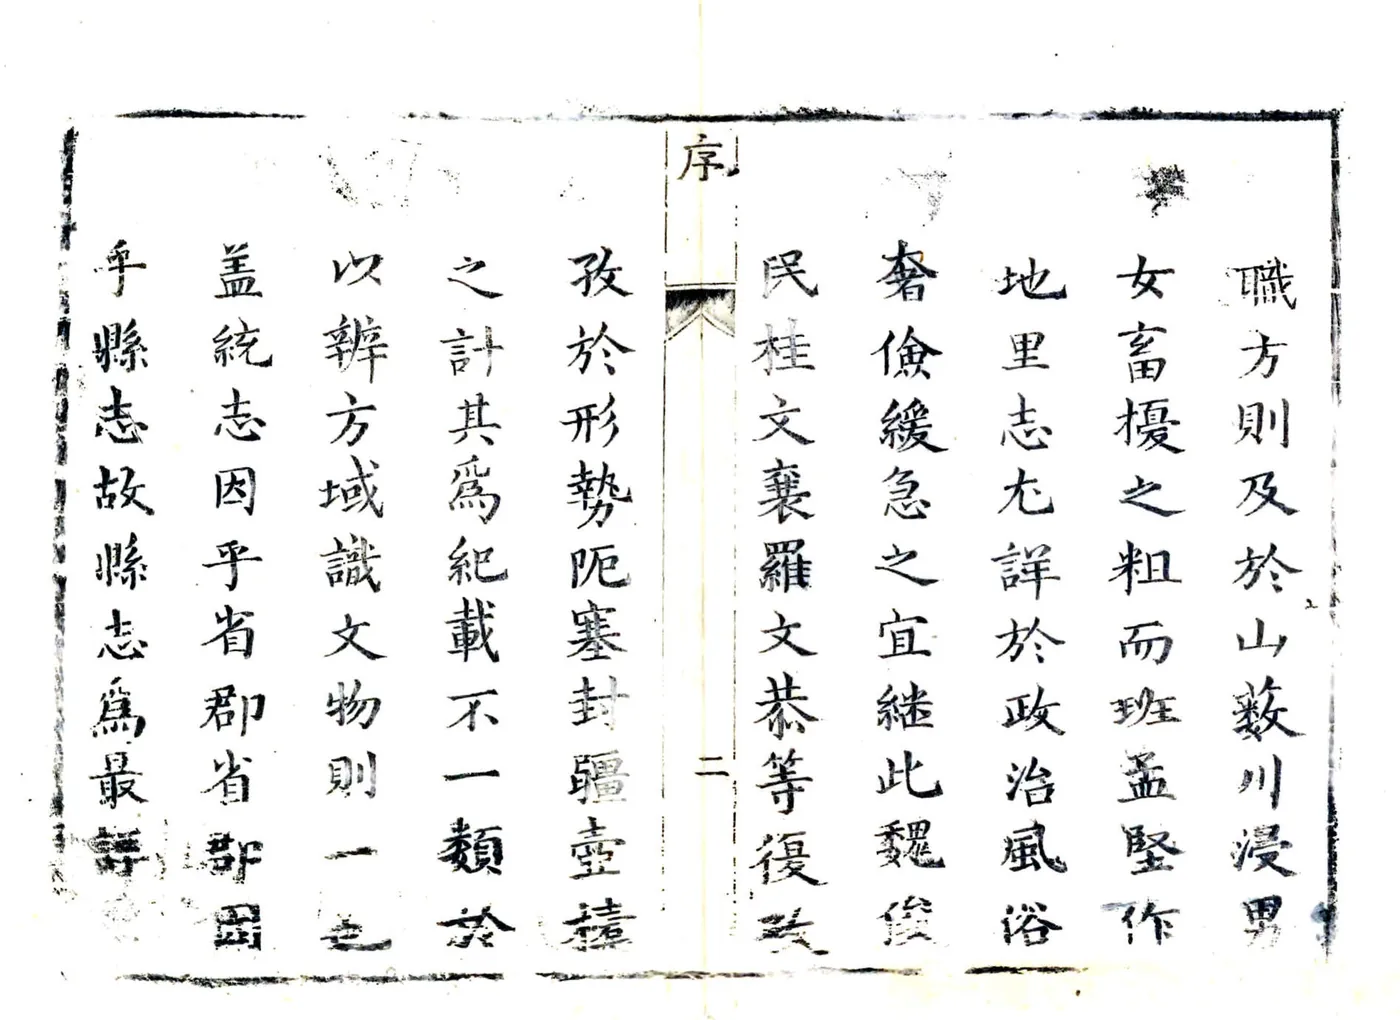 職方則及於山藪川浸男
女畜擾之粗而班孟堅作
地里志尤詳於政治風俗
奢儉緩急之宜繼此魏俊
民桂文襄羅文恭等復攷
序
二
孜於形勢阨塞封疆壺
之計其為紀載不一類於
以辨方域識文物則一也
盖統志因乎省郡省郡因
乎縣志故縣志為最詳